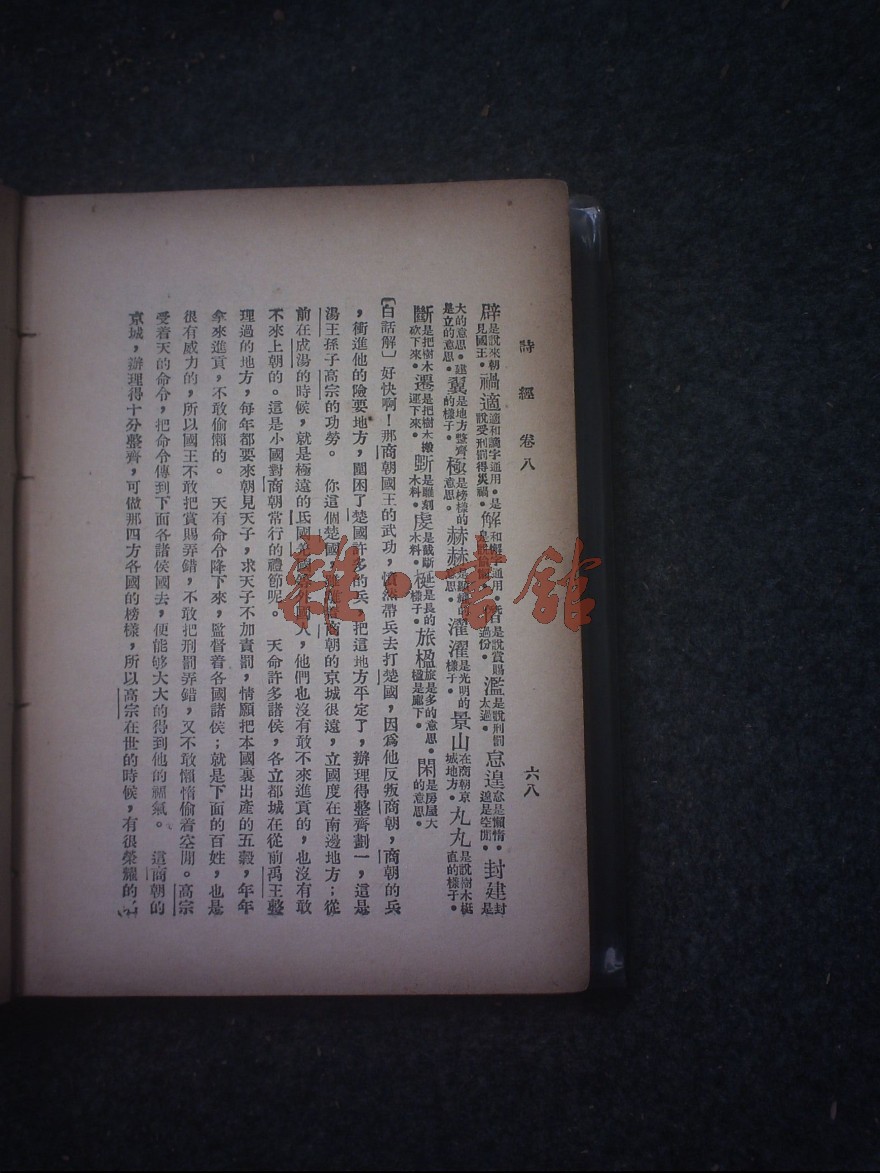 詩經卷八 六八
辟是說來朝見國王。禍適適和讁字通用。是說受刑罰得災禍。解和懈字通用。是說賞賜過份。濫是說刑罰太過。怠遑怠是懶惰。遑是空閒。封建封是
大的意思。建是立的意思。翼是地方整齊的樣子。極是榜樣的意思。赫赫濯濯是光明的樣子。景山在商朝京城地方。丸丸是說樹木梃直的樣子。
斷是把樹木砍下來。遷是把樹木搬運下來。斲是雕刻木料。虔是截斷木料。梴是長的樣子。旅楹旅是多的意思。楹是廊下。閑是房屋大的意思。
〔白話解〕好快啊!那商朝國王的武功,憤然帶兵去打楚國,因爲他反叛商朝,商朝的兵
,衝進他的險要地方,圍困了楚國許多的兵,把這地方平定了,辦理得整齊劃一,這是
湯王孫子高宗的功勞。 你這個楚國,商朝的京城很遠,立國度在南邊地方;從
前在成湯的時候,就是極遠的氐國國人,他們也沒有敢不來進貢的,也沒有敢
不來上朝的。這是小國對商朝常行的禮節呢。 天命許多諸侯,各立都城在從前禹王整
理過的地方,每年都要來朝見天子,求天子不加責罰,情願把本國裏出產的五穀,年年
拿來進貢,不敢偷懶的。 天有命令降下來,監督着各國諸侯;就是下面的百姓,也是
很有威力的,所以國王不敢把賞賜弄錯,不敢把刑罰弄錯,又不敢懶惰偷着空閒。高宗
受着天的命令,把命令傳到下面各諸侯國去,便能够大大的得到他的福氣。 這商朝的
京城,辦理得十分整齊,可做那四方各國的榜樣,所以高宗在世的時候,有很榮耀的,
雜·書館